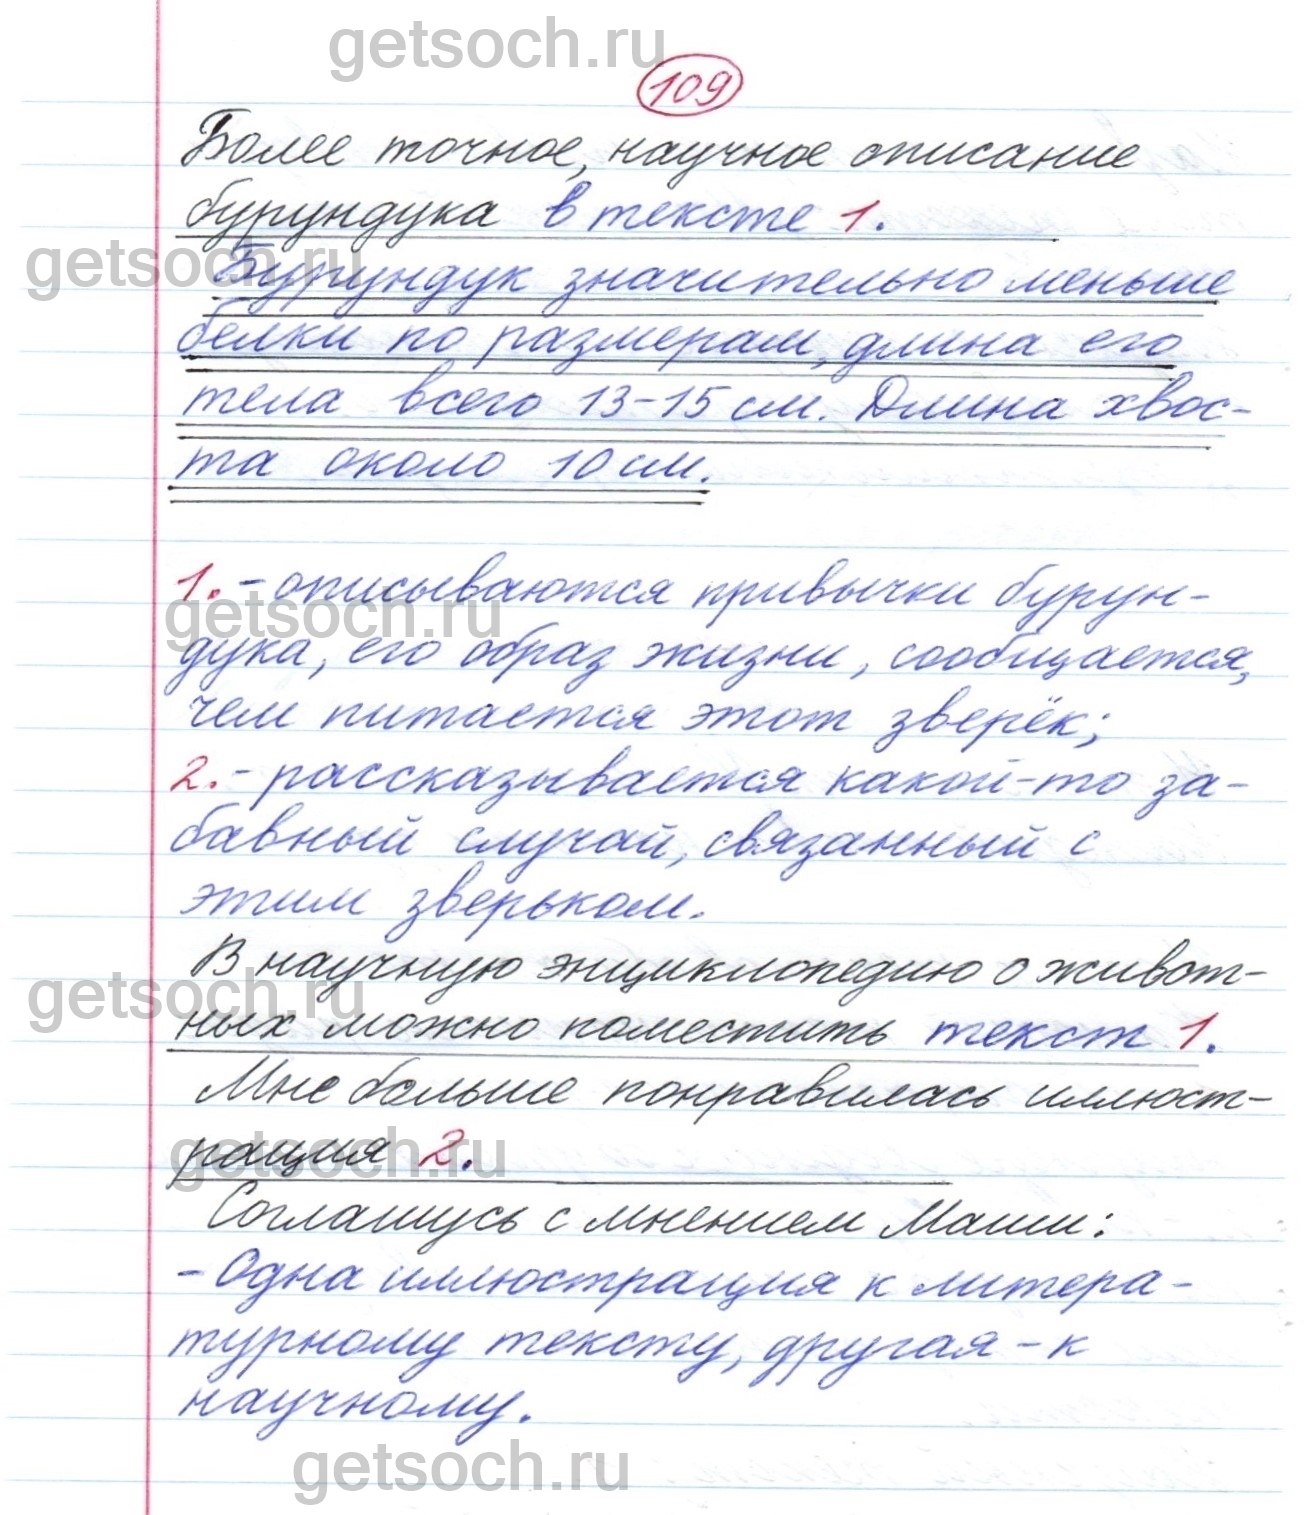 getsoch.ru
109
Более точное, научное описание
бурундука в тексте 1.
getsoch.ru
Бурундук значительно меньше
белки по размерам, длина его
тела всего 13-15 см. Длина хвос-
та около 10 см.
1. - описываются привычки бурун-
getsoch.ru
дука, его образ жизни, сообщается,
чем питается этот зверёк;
2. - рассказывается какой-то за-
бавный случай, связанный с
этим зверьком.
В научную энциклопедию о живот-
getsoch.ru
ных можно поместить текст 1.
Мне больше понравилась иллюст-
рация 2.
getsoch.ru
Соглашусь с мнением Маши:
- Одна иллюстрация к литера-
турному тексту, другая - к
научному.
getsoch.ru